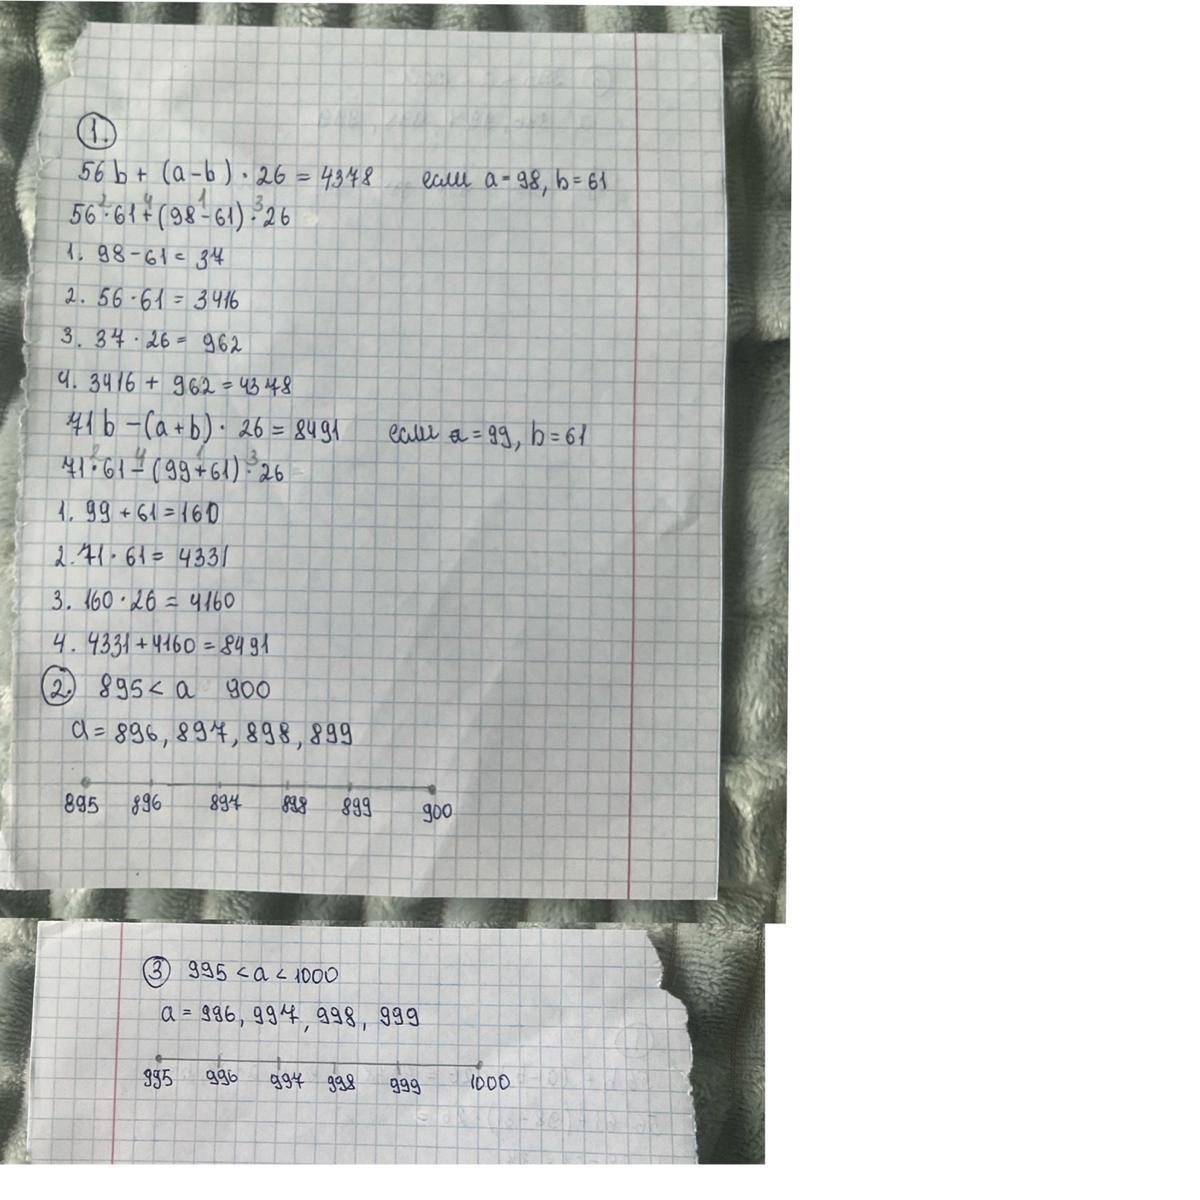 1.
56b + (a-b) · 26 = 4378 если a=98, b=61
2 4 1 3
56·61+(98-61)·26
1. 98-61= 37
2. 56·61= 3416
3. 37·26= 962
4. 3416 + 962 = 4378
71b -(a+b)· 26 = 8491 если a=99, b=61
2 4 1 3
71·61-(99+61)·26
1. 99+61=160
2. 71·61= 4331
3. 160·26= 4160
4. 4331+4160=8491
2. 895< a 900
a= 896, 897, 898, 899
895 896 897 898 899 900
3 995 <a < 1000
a= 996, 997, 998, 999
995 996 997 998 999 1000